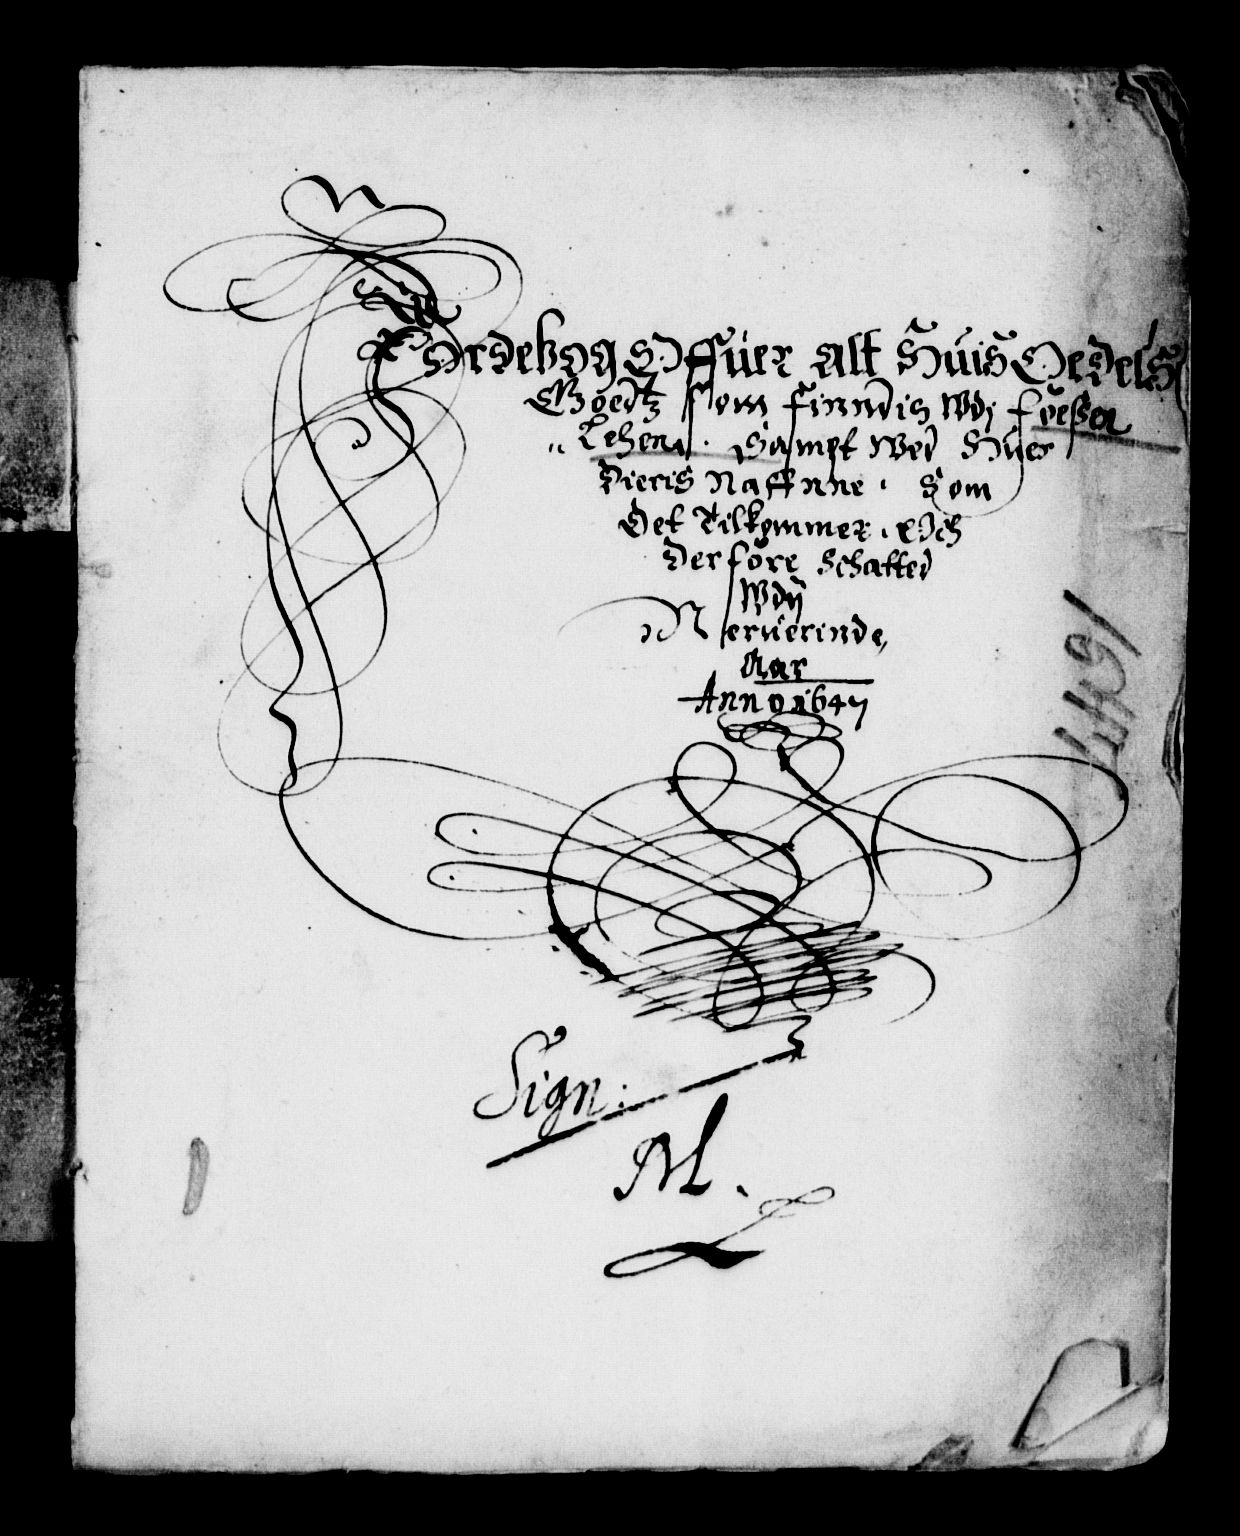 En
Jordebog Offuer alt Huis Oedels
Goedtz som findis Udj
Lehen. Sampt Wed Huer
Dieris Naffnne. Som
Det Tilkommer, Och
Derfore Schatted
Udij
Neruerinde,
Aar
Anno 1647
1647
Sign:
ML.